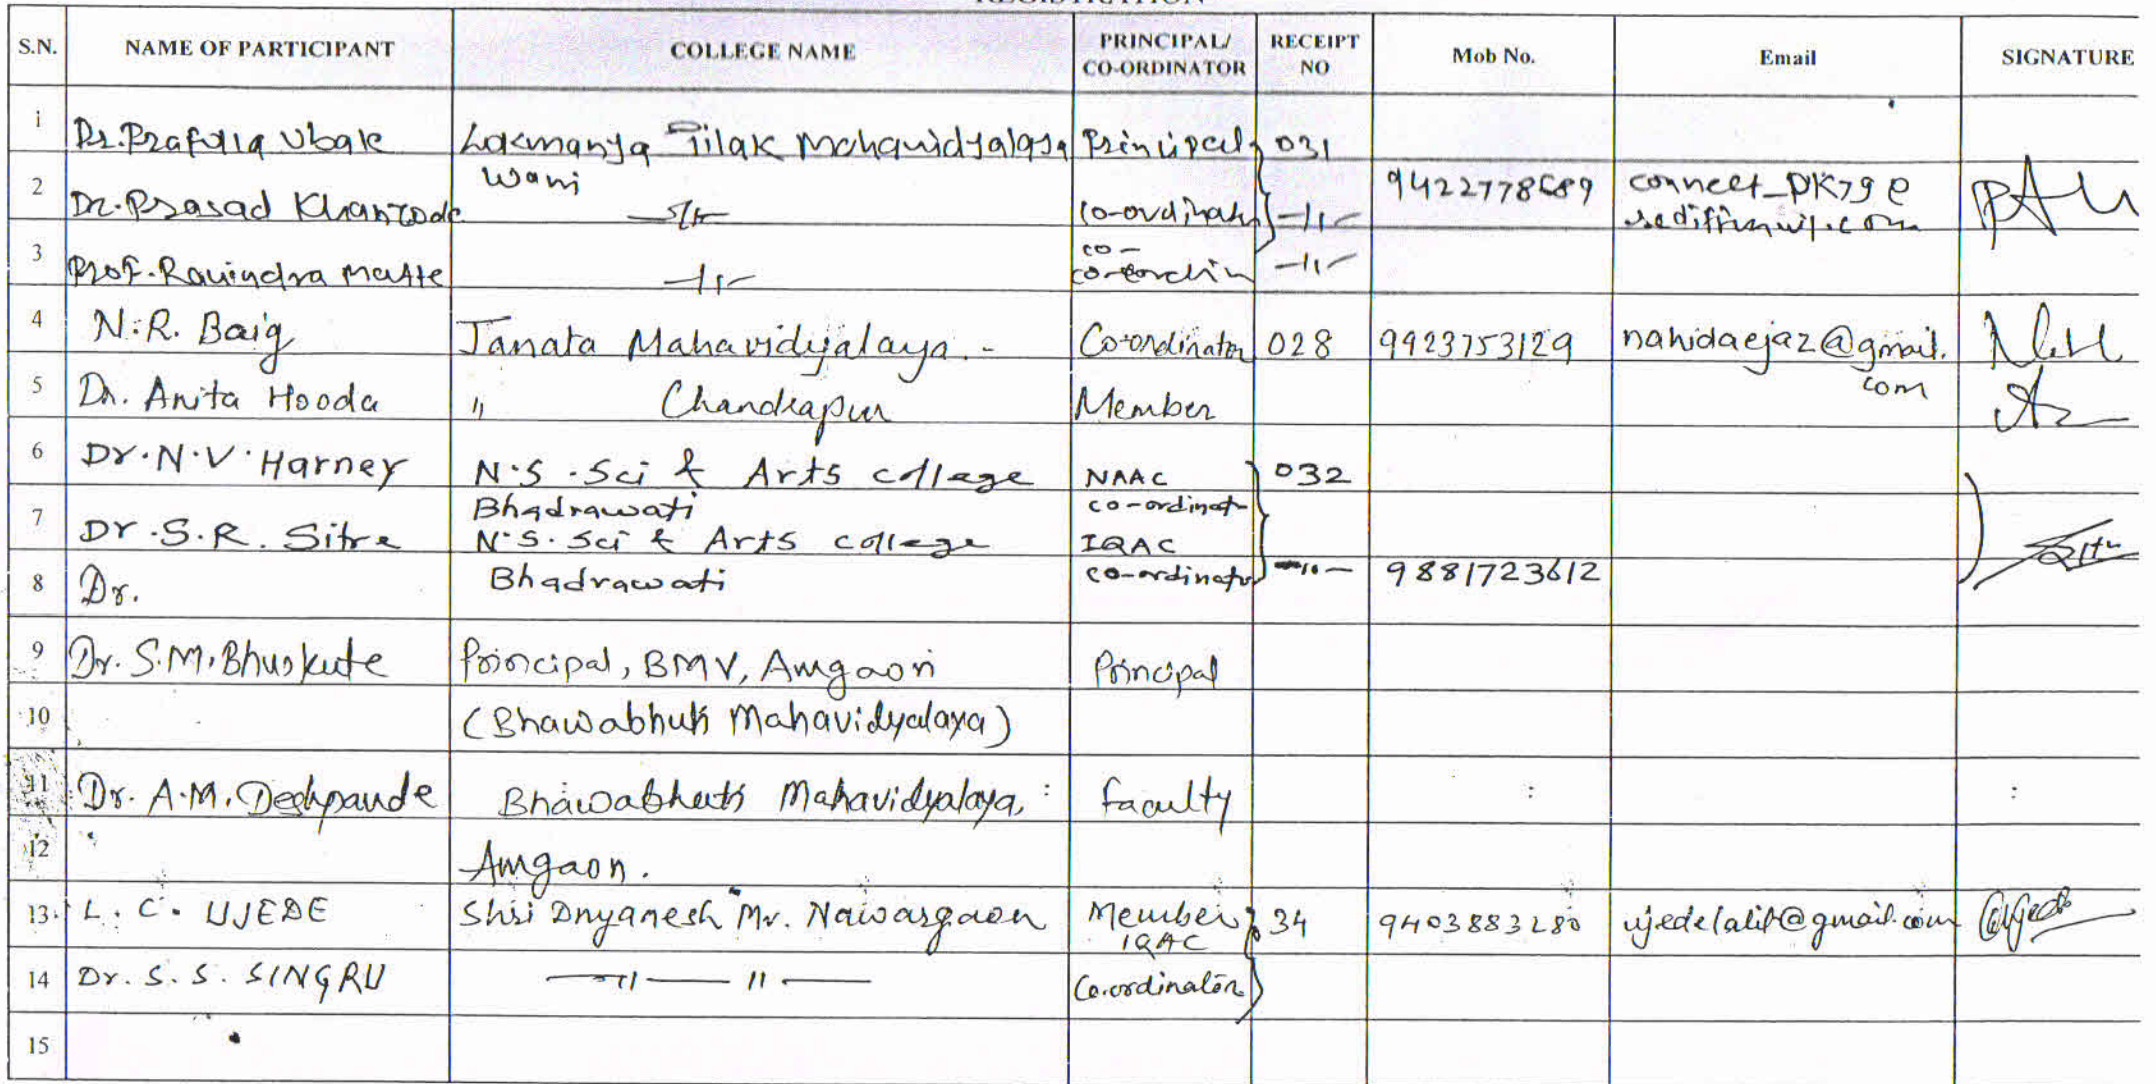 REGISTRATION
S.N. NAME OF PARTICIPANT COLLEGE NAME PRINCIPAL/ CO-ORDINATOR RECEIPT NO Mob No. Email SIGNATURE
1 Dr. Prafulla Ubale Lokmanya Tilak Mahavidyalaya Principal 031
Wani
2 Dr. Prasad Khanzode —11— Co-ordinator —11— 9422778689 connect_pk79@
rediffmail.com
3 Prof. Ravindra Matte —11— co- —11—
4 N.R. Baig Janata Mahavidyalaya.- Co-ordinator 028 9923753129 nahidaejaz@gmail.
com
5 Dr. Anita Hooda " Chandrapur Member
6 Dr. N.V. Harney N.S. Sci & Arts college NAAC 032
Bhadrawati co-ordinat
7 Dr. S.R. Sitre N.S. Sci & Arts college IQAC
8 Dr. Bhadrawati co-ordinator —11— 9881723612
9 Dr. S.M. Bhuskute Principal, BMV, Amgaon Principal
10 (Bhawabhuti Mahavidyalaya)
11 Dr. A.M. Deshpande Bhawabhuti Mahavidyalaya, faculty
12 Amgaon.
13 L. C. UJEDE Shri Dnyanesh Mv. Nawargaon Member 34 9403883280 ujedelalit@gmail.com
IQAC
14 Dr. S. S. SINGRU —11— 11 — Co-ordinator
15